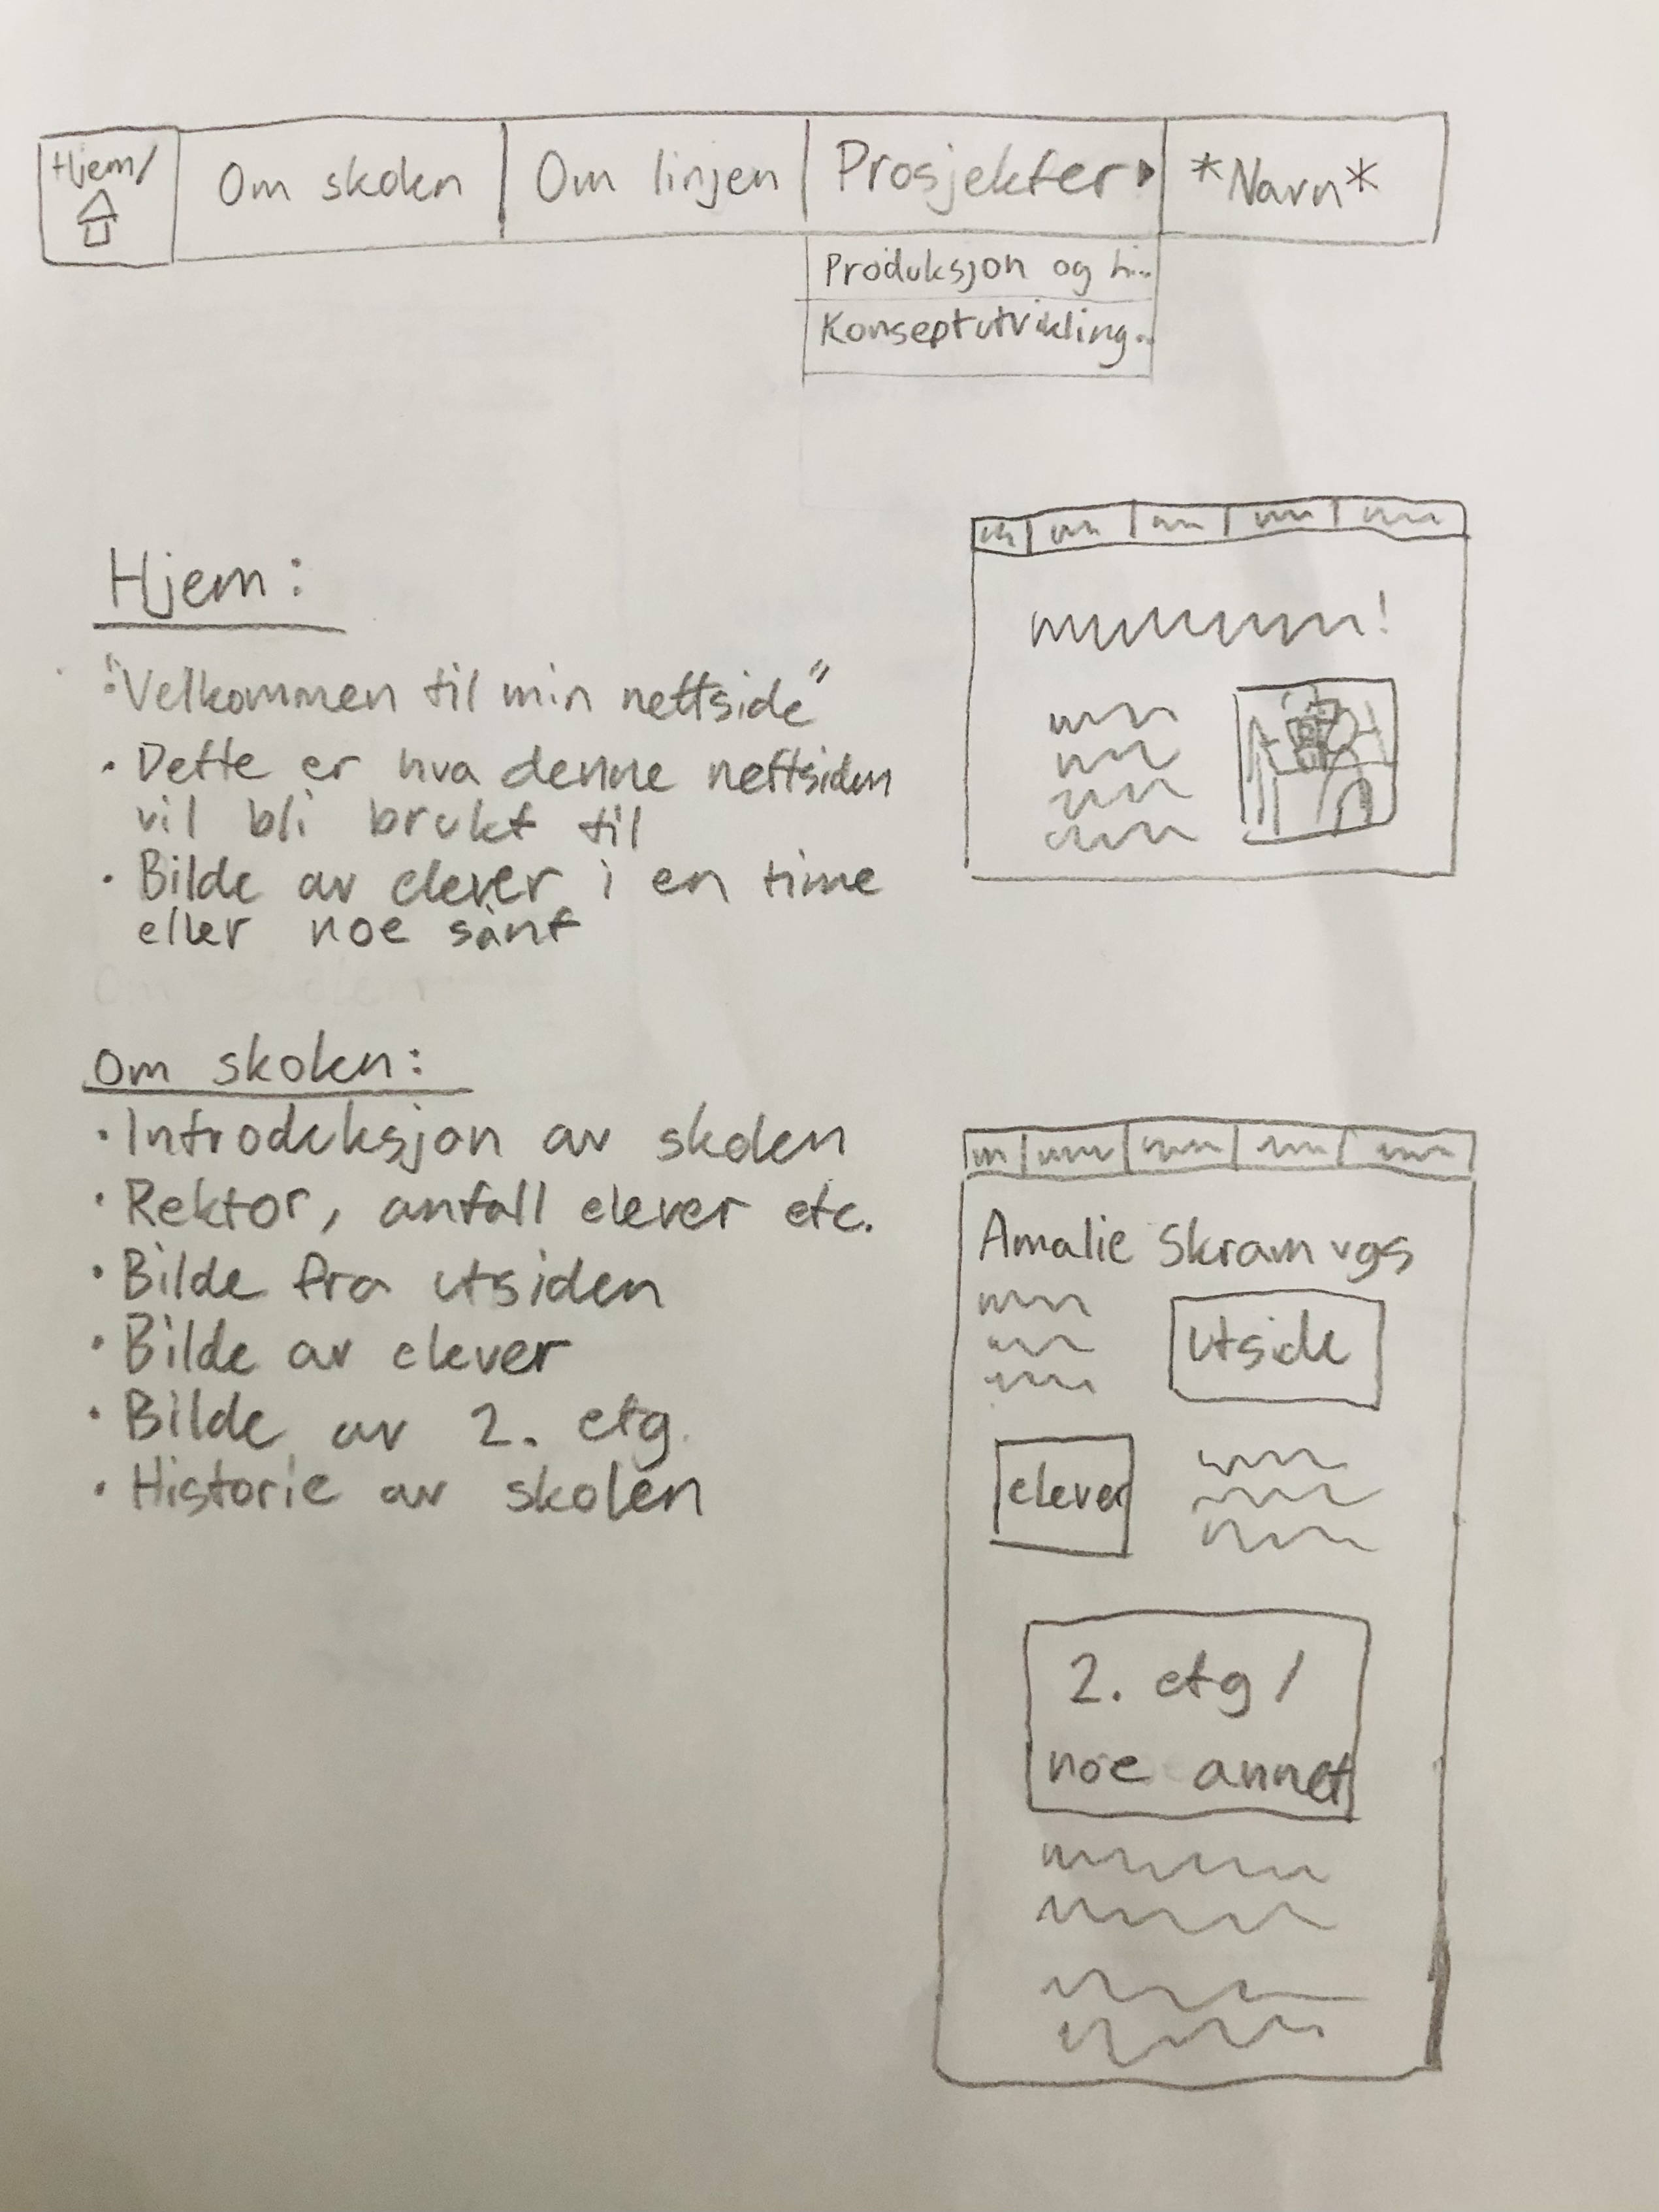 Hjem/
Om skolen
Om linjen
Prosjekter
*Navn*
Produksjon og h...
Konseptutvikling..
Hjem:
"Velkommen til min nettside"
• Dette er hva denne nettsiden
vil bli brukt til
• Bilde av elever i en time
eller noe sånt
Om skolen:
• Introduksjon av skolen
• Rektor, antall elever etc.
• Bilde fra utsiden
• Bilde av elever
• Bilde av 2. etg.
• Historie av skolen
Amalie Skram vgs
utside
elever
2. etg /
noe annet